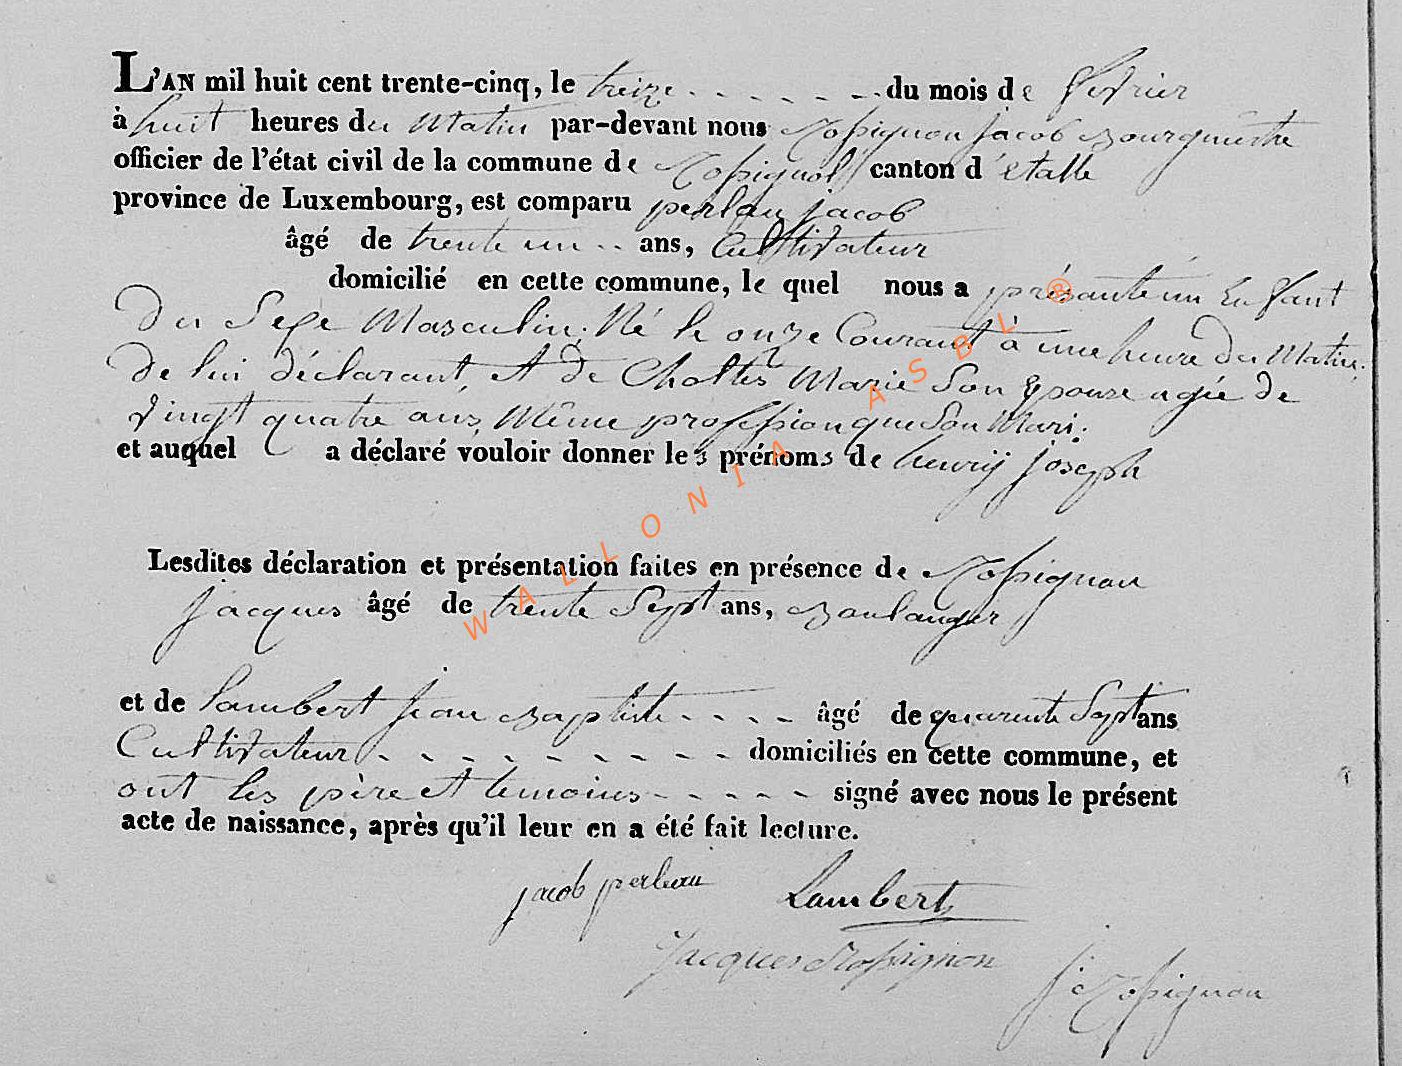 L'AN mil huit cent trente-cinq, le treize - - - - - - du mois de fevrier
à huit heures du Matin par-devant nous Rossignon jacob Bourguestre
officier de l'état civil de la commune de Rossignol canton d'etalle
province de Luxembourg, est comparu jacob
âgé de trente un - - ans, Cultivateur
domicilié en cette commune, le quel nous a présanté un Enfant
du Sexe Masculin, Né le onze Courant à une heure du Matin,
de lui déclarant, et de Marie Son Epouse agée de
vingt quatre ans, Même profession que Son Mari.
et auquel a déclaré vouloir donner les prénoms de henrij joseph
Lesdites déclaration et présentation faites en présence de Rossignon
jacques âgé de trente Sept ans, Boulanger
et de lambert jean Baptiste - - - - âgé de quarente Sept ans
Cultivateur - - - - - - - - - domiciliés en cette commune, et
ont les père et temoins - - - - - signé avec nous le présent
acte de naissance, après qu'il leur en a été fait lecture.
jacob perleau Lambert
jacques Rossignon j Rossignon
WALLONIA ASBL ®